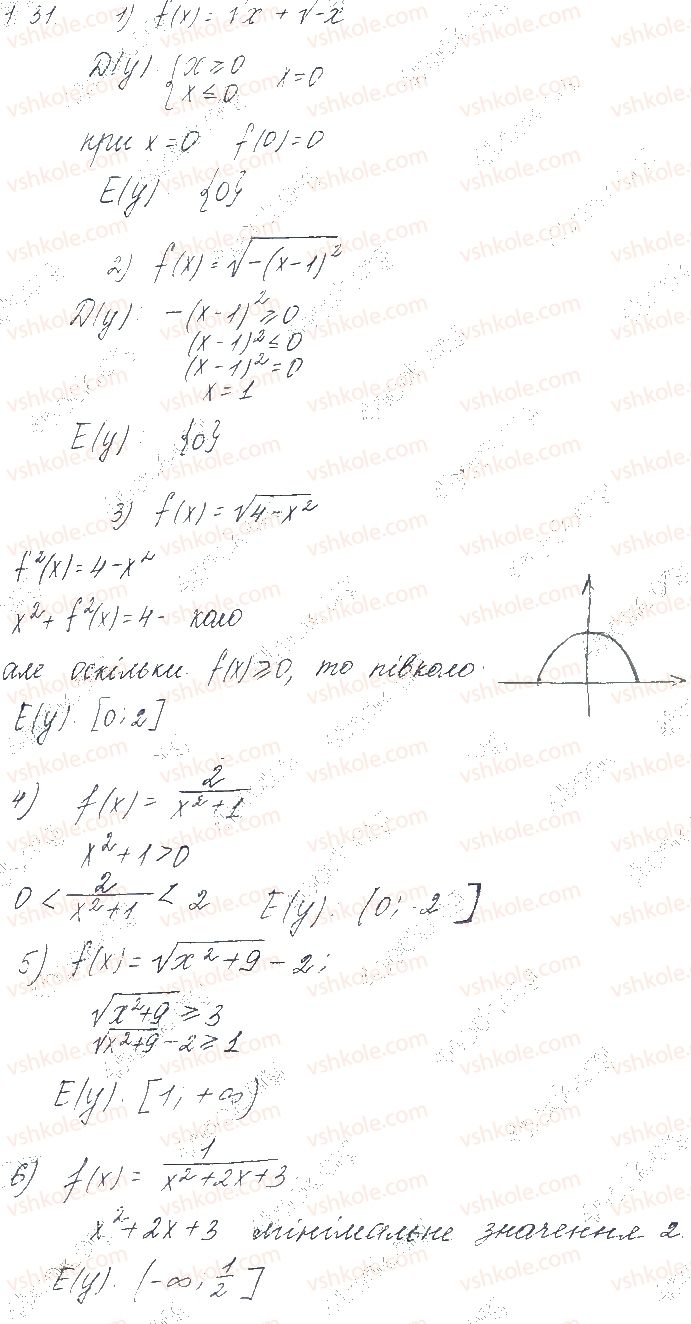 1.31 1) f(x) = √x + √-x
D(y) { x ⩾ 0
x ⩽ 0 x = 0
при x = 0 f(0) = 0
E(y) {0}
2) f(x) = √-(x-1)²
D(y) -(x-1)² ⩾ 0
(x-1)² ⩽ 0
(x-1)² = 0
x = 1
E(y) {0}
3) f(x) = √4-x²
f²(x) = 4-x²
x² + f²(x) = 4 - коло
але оскільки f(x) ⩾ 0, то півколо
E(y). [0; 2]
4) f(x) = 2/(x²+1)
x² + 1 > 0
0 < 2/(x²+1) < 2 E(y). (0; 2]
5) f(x) = √x²+9 - 2;
√x²+9 ⩾ 3
√x²+9 - 2 ⩾ 1
E(y). [1; +∞)
6) f(x) = 1/(x²+2x+3)
x² + 2x + 3 мінімальне значення 2.
E(y). (-∞; 1/2]
vshkole.com